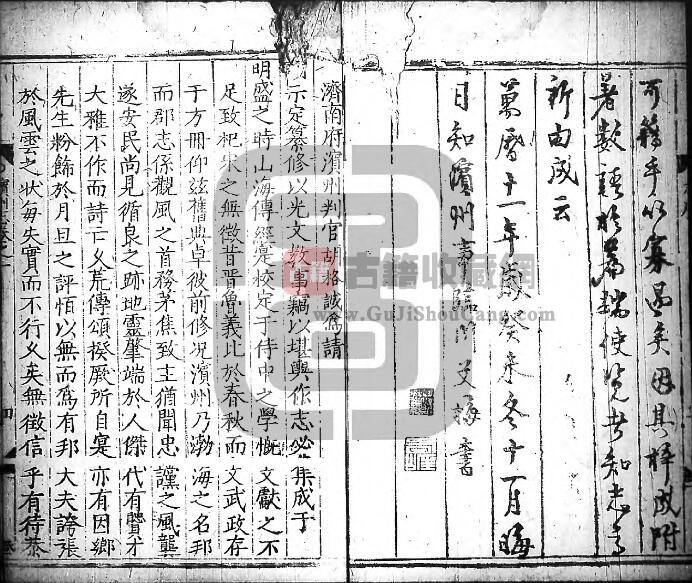 可籍手以寡過矣因其梓成附
著數語於篇端使覽者知志之
所由成云
萬曆十一年歲癸未冬十一月晦
日知濱州事臨汾艾梅書
濟南府濱州判官胡格誠為請
示定纂修以光文敎事竊以堪輿作志必集成于
明盛之時山海傳經寔校定于侍中之學慨文獻之不
足致杞宋之無徵昔晋魯義比於春秋而文武政存
于方冊仰兹舊典卓彼前修况濱州乃渤海之名邦
而郡志係觀風之首務茅焦致主猶聞忠讜之風龔
遂安民尚見循良之跡地靈肇端於人傑代有賢才
大雅不作而詩亡义荒傳頌揆厥所自寔亦有因鄉
先生粉餙於月旦之評恒以無而為有邦大夫誇張
於風雲之狀每失實而不行义矣無徵信乎有待恭
古籍收藏网
www.GuJiShouCang.com